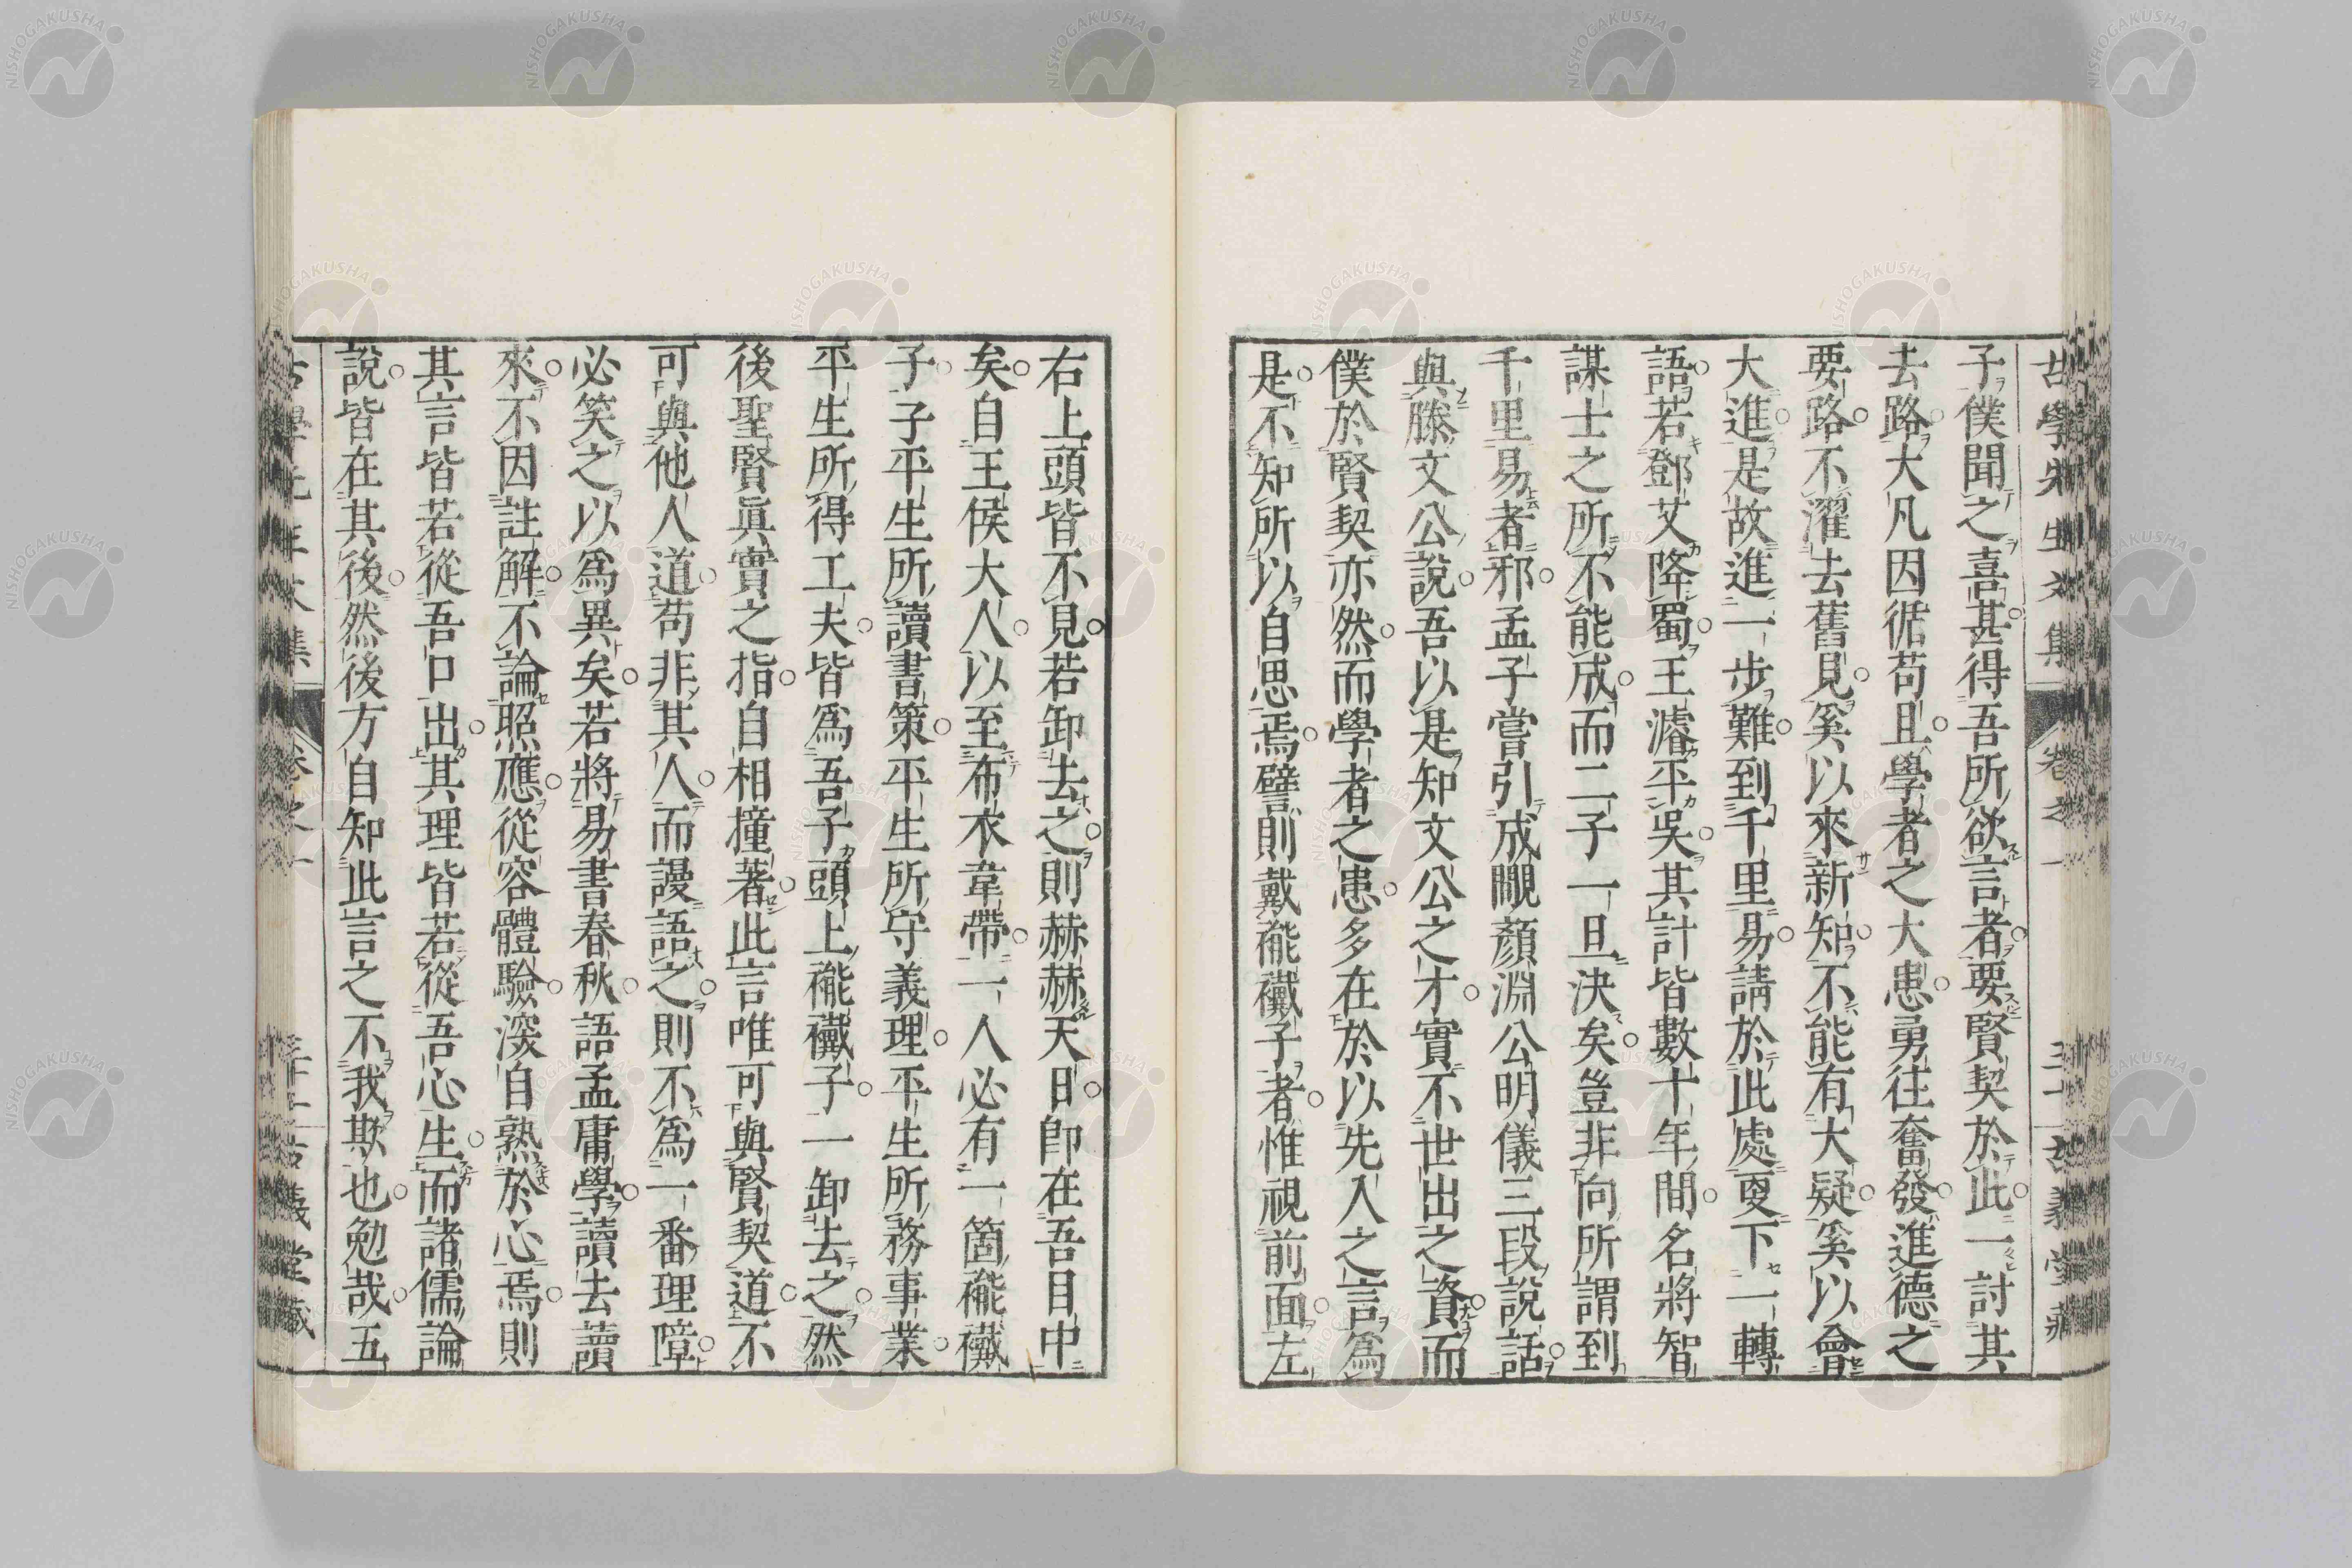 古學先生文集 卷之一 三十 古義堂藏
子僕聞之喜甚得吾所欲言者要賢契於此一討其
去路大凡因循苟且學者之大患勇往奮發進德之
要路不濯去舊見奚以來新知不能有大疑奚以會
大進是故進一步難到千里易請於此處更下一轉
語若鄧艾降蜀王濬平吳其計皆數十年間名將智
謀士之所不能成而二子一旦決矣豈非向所謂到
千里易者邪孟子嘗引成覵顏淵公明儀三段說話
與滕文公說吾以是知文公之才實不世出之資而
僕於賢契亦然而學者之患多在於以先入之言為
是不知所以自思焉譬則戴襶子者惟視前面左
右上頭皆不見若卸去之則赫赫天日即在吾目中
矣自王侯大人以至布衣韋帶一人必有一箇褦襶
子子平生所讀書策平生所守義理平生所務事業
平生所得工夫皆爲吾子頭上褦襶子一卸去之然
後聖賢眞實之指自相撞著此言唯可與賢契道不
可與他人道苟非其人而謾語之則不爲一番理障
必笑之以爲異矣若將易書春秋語孟庸學讀去讀
來不因註解不論照應從容體驗深自熟於心焉則
其言皆若從吾口出其理皆若從吾心生而諸儒論
說皆在其後然後方自知此言之不我欺也勉哉五
古學先生文集 卷之一 古義堂藏
NISHOGAKUSHA